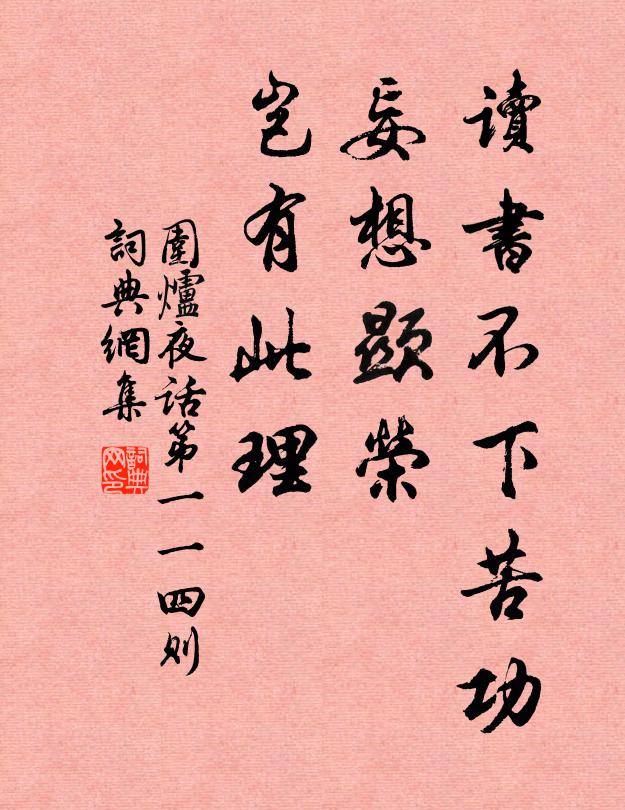 讀書不下苦功
妄想顯榮
豈有此理
圍爐夜話第一一四則
詞典網集
詞典网印